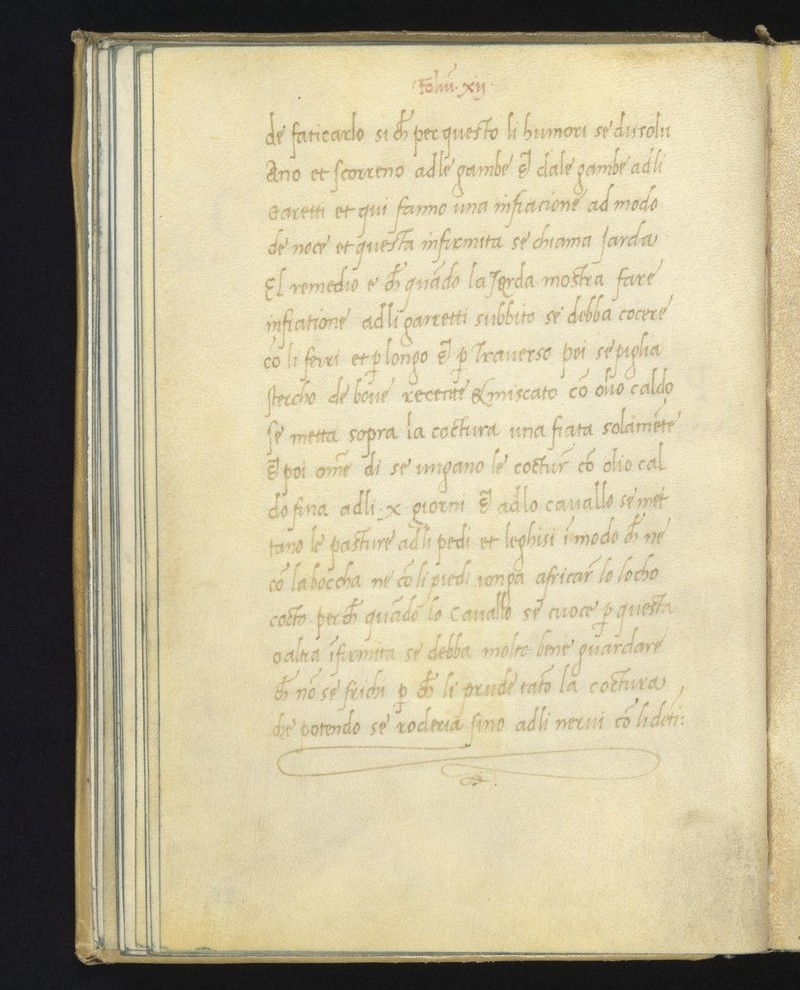 Foliu. xij
de faticarlo si ch̄ per questo li humori se dusolu
Ano et scorreno adle gambe & dale gambe adli
Garetti et qui fanno una infiacione ad modo
de noce et questa infirmita se chiama Jarda
El remedio e ch̄ quādo la Jarda mostra fare
infiatione adli garretti subbito se debba cocere
cō li ferri et p̱ longo & p̱ traverso poi se piglia
stercho de bove recente & miscato cō olio caldo
se metta sopra la coctura una fiata solamēte
& poi omē di se ungano le coctur̄ cō olio cal
do fina adli .x giorni & adlo cavallo se met
tano le pasture adli pedi et leghisi ī modo ch̄ ne
cō la boccha ne cō li piedi africar̄ lo locho
cocto perch̄ quādo lo Cavallo se cuoce p̱ questa
o altra īfirmita se debba molto bene guardare
ch̄ nō se frichi p̱ ch̄ li prude tāto la coctura
che potendo se roderia fino adli nervi cō li dēti: